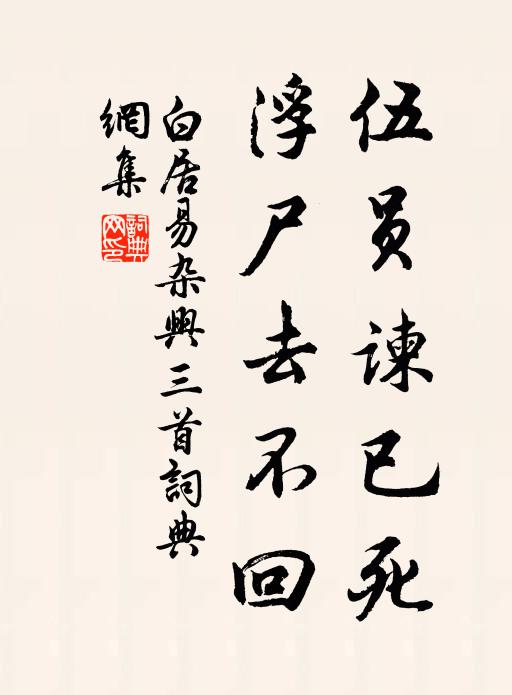 伍员谏已死
浮尸去不回
白居易杂興三首詞典
網集
詞典
网印